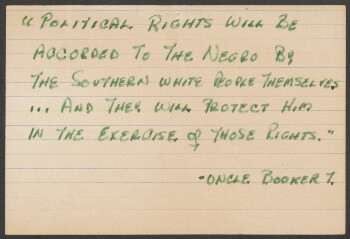 "POLITICAL RIGHTS WILL BE
ACCORDED TO THE NEGRO BY
THE SOUTHERN WHITE PEOPLE THEMSELVES
... AND THEY WILL PROTECT HIM
IN THE EXERCISE OF THOSE RIGHTS."
-UNCLE BOOKER T.